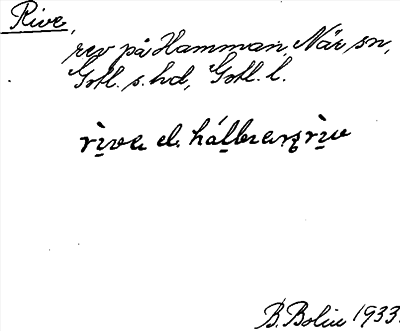 Rive,
rev på Hamman, När sn,
Gotl. s. hd, Gotl. l.
rìva el.
B. Bolin 1933.